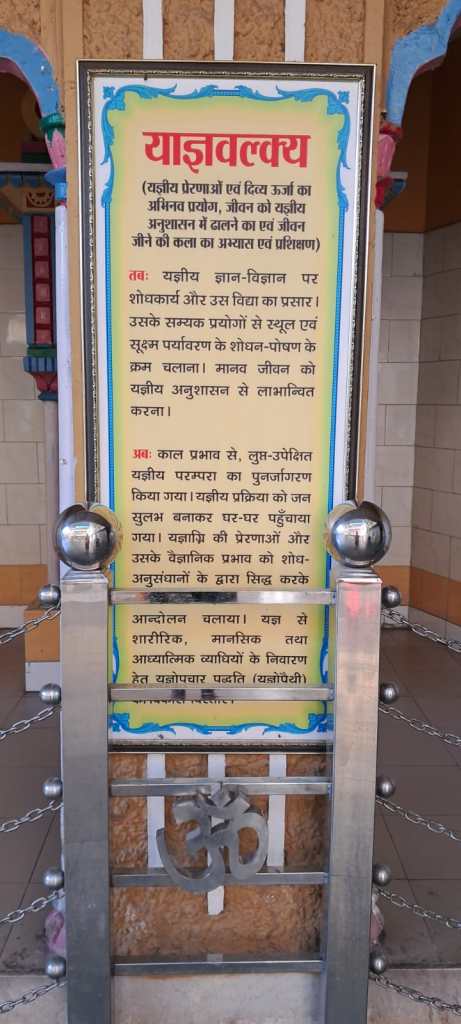 याज्ञवल्क्य
(यज्ञीय प्रेरणाओं एवं दिव्य ऊर्जा का
अभिनव प्रयोग, जीवन को यज्ञीय
अनुशासन में ढालने का एवं जीवन
जीने की कला का अभ्यास एवं प्रशिक्षण)
तबः यज्ञीय ज्ञान-विज्ञान पर
शोधकार्य और उस विद्या का प्रसार।
उसके सम्यक प्रयोगों से स्थूल एवं
सूक्ष्म पर्यावरण के शोधन-पोषण के
क्रम चलाना। मानव जीवन को
यज्ञीय अनुशासन से लाभान्वित
करना।
अबः काल प्रभाव से, लुप्त-उपेक्षित
यज्ञीय परम्परा का पुनर्जागरण
किया गया। यज्ञीय प्रक्रिया को जन
सुलभ बनाकर घर-घर पहुँचाया
गया। यज्ञाग्नि की प्रेरणाओं और
उसके वैज्ञानिक प्रभाव को शोध-
अनुसंधानों के द्वारा सिद्ध करके
आन्दोलन चलाया। यज्ञ से
शारीरिक, मानसिक तथा
आध्यात्मिक व्याधियों के निवारण
हेतु यज्ञोपचार पद्धति (यज्ञोपैथी)
ॐ